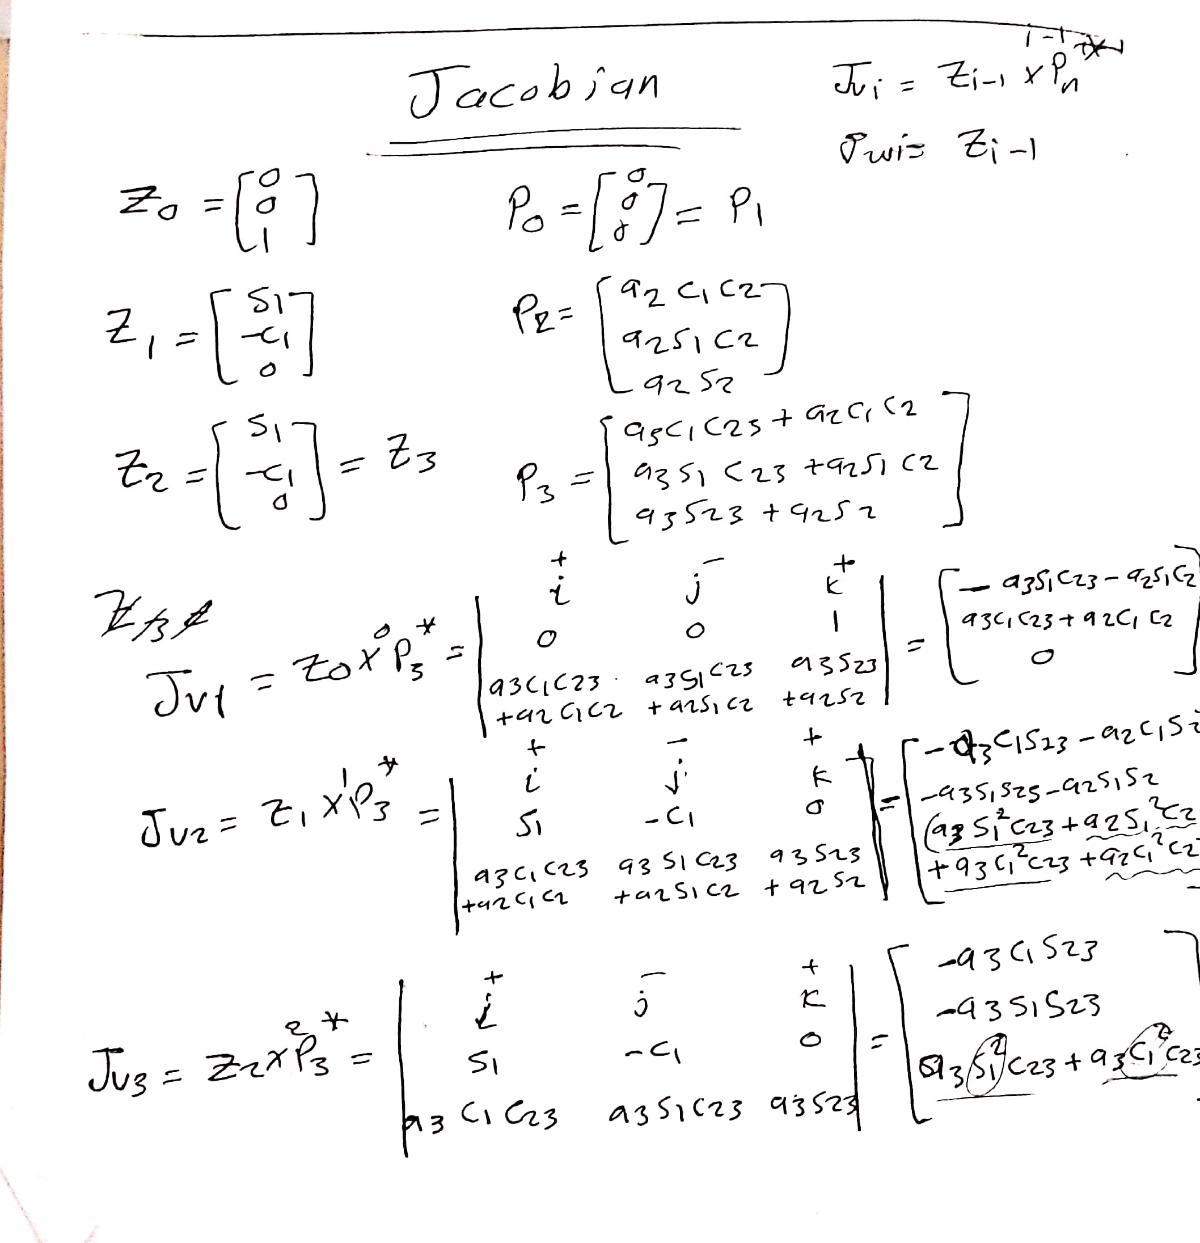 Jacobian
Jvi = Zi-1 x ⁱ⁻¹Pn*
Jwi = Zi-1
Z0 = [0 0 1]
P0 = [0 0 0] = P1
Z1 = [S1 -C1 0]
P2 = [a2 C1 C2
a2 S1 C2
a2 S2]
Z2 = [S1 -C1 0] = Z3
P3 = [a3 C1 C23 + a2 C1 C2
a3 S1 C23 + a2 S1 C2
a3 S23 + a2 S2]
Jv1 = Z0 x ⁰P3* = | + - +
i j k
0 0 1
a3 C1 C23 a3 S1 C23 a3 S23
+a2 C1 C2 +a2 S1 C2 +a2 S2 |
= [- a3 S1 C23 - a2 S1 C2
a3 C1 C23 + a2 C1 C2
0]
Jv2 = Z1 x ¹P3* = | + - +
i j k
S1 -C1 0
a3 C1 C23 a3 S1 C23 a3 S23
+a2 C1 C2 +a2 S1 C2 +a2 S2 |
= [-a3 C1 S23 - a2 C1 S2
-a3 S1 S23 - a2 S1 S2
(a3 S1² C23 + a2 S1² C2
+ a3 C1² C23 + a2 C1² C2]
Jv3 = Z2 x ²P3* = | + - +
i j k
S1 -C1 0
a3 C1 C23 a3 S1 C23 a3 S23 |
= [-a3 C1 S23
-a3 S1 S23
a3 S1² C23 + a3 C1² C23]